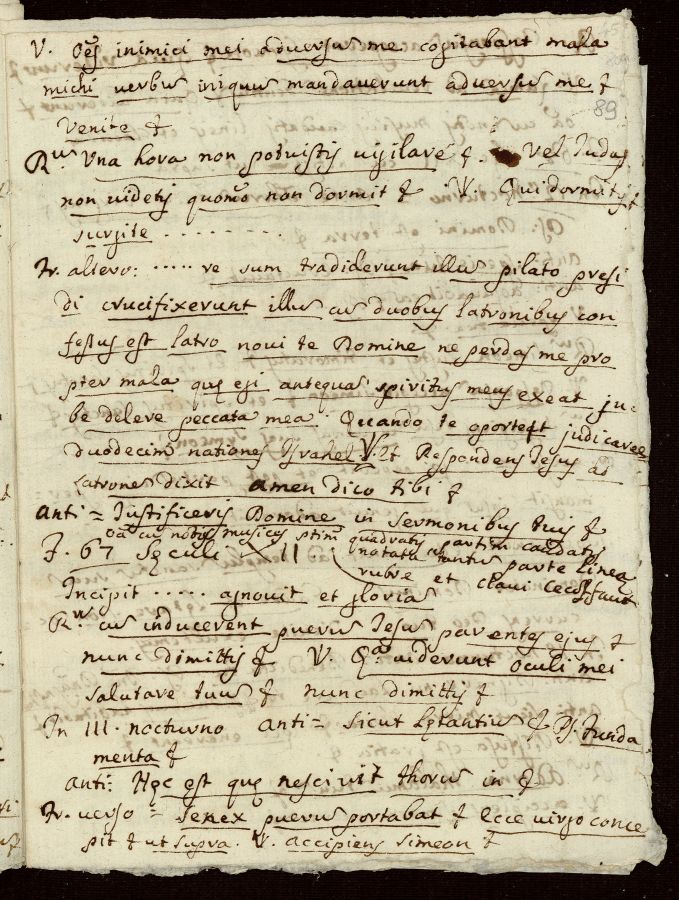 V. Oēs inimici mei adversus me cogitabant mala
michi verbū iniquū mandaverunt adversus me &
89
Venite &
Rꝰ Una hora non potuistis vigilare &. vel Judas
non videtis quomō non dormit & V. Quid dormitis &
surgite . . . . . . . . .
Tr. altero: ..... re sum tradiderunt illū pilato presi
di crucifixerunt illū cū duobus latronibus con
fessus est latro novi te Domine ne perdas me pro
pter mala quę egi antequā spiritus meus exeat ju-
be delere peccata mea. Quando te oportet judicare
duodecim nationes Israhel V. Et Respondens Jesus ai
latrones dixit amen dico tibi &
anti = Justificeris Domine in sermonibus tuis &
oā cū notis musicis quadratis partim caudatis
F. 67 Sęculi XII. notata tantū parte linea
rubre et clavi Cecolfaut
Incipit ..... agnovit et glorias
R. cū inducerent puerū Jesus parentes ejus &
nunc dimittis & V. Qā viderunt oculi mei
salutare tuū & nunc dimittis &
In III. nocturno anti = sicut lętantiū & Ps. Funda
menta &
anti: Hęc est quę nescivit thorū in &
Tr. verso = senex puerū portabat & Ecce virgo conce
pit & ut supra. V. accipiens simeon &